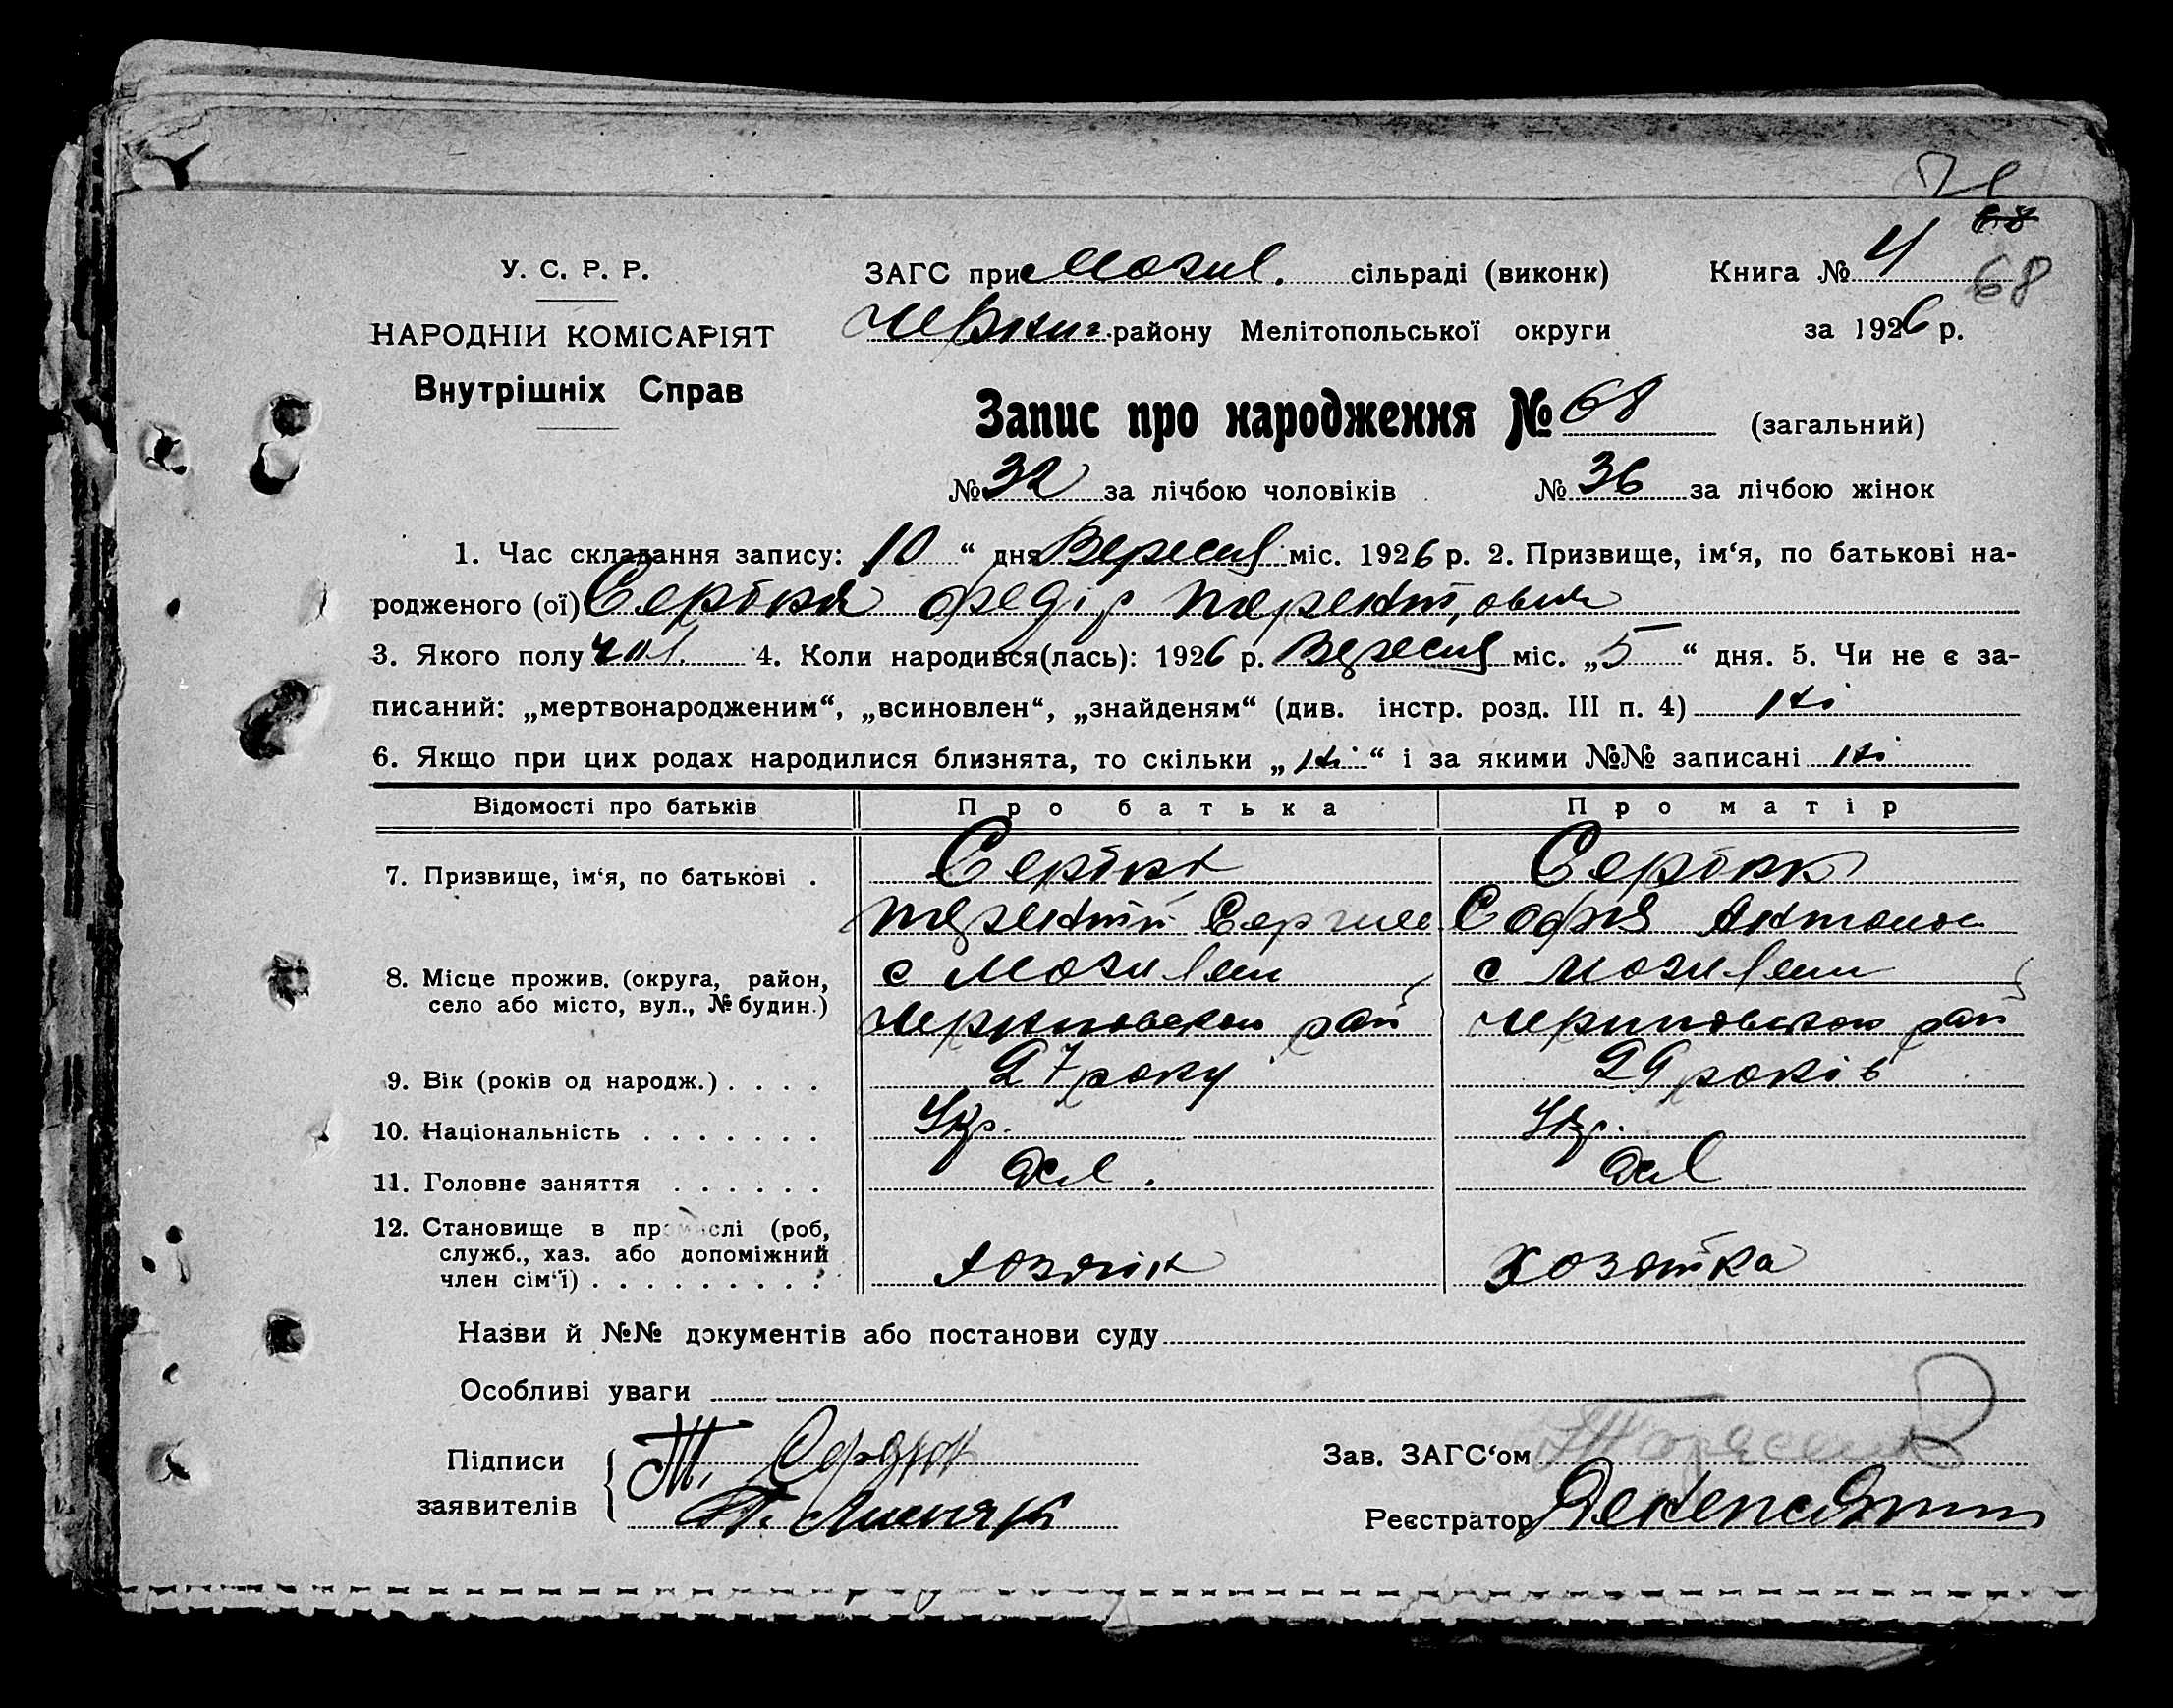 71
68
У. С. Р. Р.
ЗАГС при Могил. сільраді (виконк)
Книга № 4
68
НАРОДНІЙ КОМІСАРІЯТ
Черниг. району Мелітопольської округи
за 1926 р.
Внутрішніх Справ
Запис про народження № 68 (загальний)
№ 32 за лічбою чоловіків № 36 за лічбою жінок
1. Час складання запису: 10 “ дня Вересня міс. 1926 р. 2. Призвище, ім‘я, по батькові на-
родженого (ої) Сербка Федір Терентович
3. Якого полу чол. 4. Коли народився(лась): 1926 р. Вересня міс. „5“ дня. 5. Чи не є за-
писаний: „мертвонародженим“, „всиновлен“, „знайденям“ (див. інстр. розд. III п. 4) Ні
6. Якщо при цих родах народилися близнята, то скільки „Ні“ і за якими №№ записані Ні
Відомості про батьків Про батька Про матір
7. Призвище, ім‘я, по батькові . Сербка Сербка
Терентій Сергиев Софія Антонов
8. Місце прожив. (округа, район, село або місто, вул., № будин.) с Могиляни с Могиляни
рай рай
9. Вік (років од народж.) . . . . 27 року 29 років
10. Національність . . . . . . . Укр. Укр.
11. Головне заняття . . . . . .
12. Становище в промислі (роб,
служб., хаз. або допоміжний
член сім‘ї) . . . . . . . . . Хозяїн Хозяйка
Назви й №№ документів або постанови суду
Особливі уваги
Підписи Т.
Зав. ЗАГС‘ом
заявителів
Реєстратор